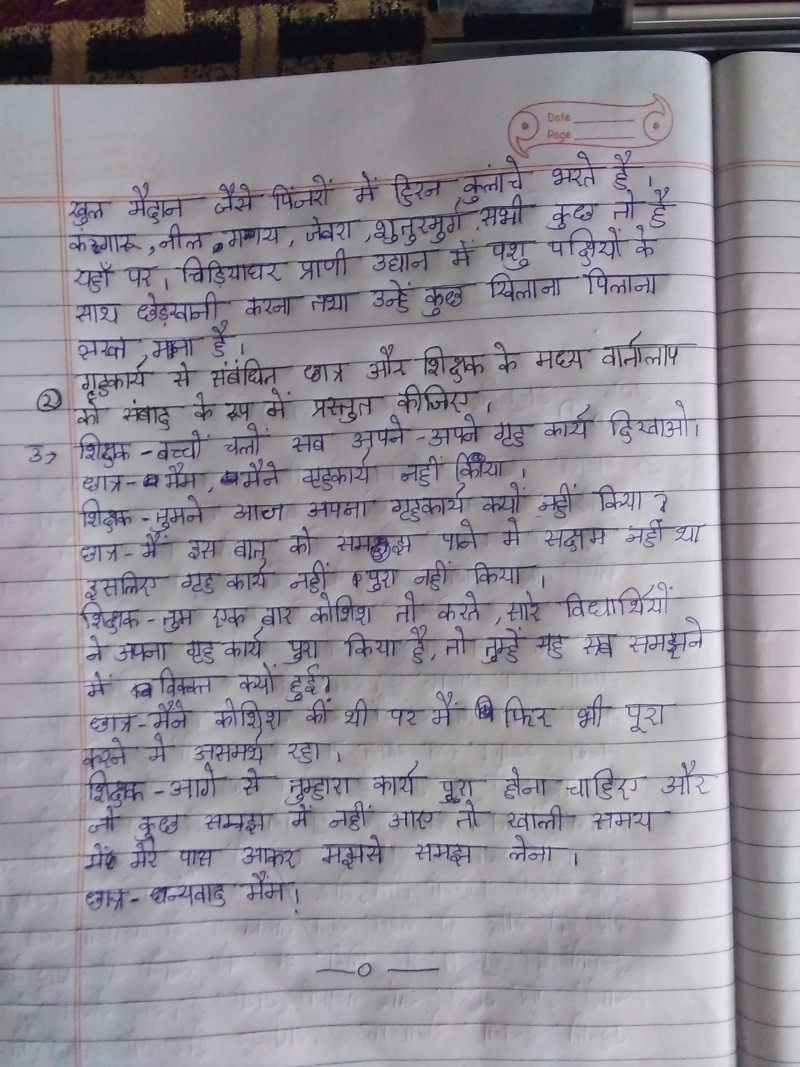 Date
Page
खुल मैदान जैसे पिंजरों में हिरन कुलांचे भरते है।
कंगारू, नील गाय, जेबरा, शुतुरमुर्ग सभी कुछ तो है
यहाँ पर। चिड़ियाघर प्राणी उद्यान में पशु पक्षियों के
साथ छेड़खानी करना तथा उन्हें कुछ खिलाना पिलाना
सख्त मना है।
② गृहकार्य से संबंधित छात्र और शिक्षक के मध्य वार्तालाप
को संवाद के रूप में प्रस्तुत कीजिए।
उ→ शिक्षक - बच्चों चलों सब अपने-अपने गृह कार्य दिखाओ।
छात्र- मैम, मैने गृहकार्य नहीं किया।
शिक्षक - तुमने आज अपना गृहकार्य क्यों नहीं किया?
छात्र- मैं इस बात को समझ पाने मे सक्षम नहीं था
इसलिए गृह कार्य नहीं पुरा नहीं किया।
शिक्षक - तुम एक बार कोशिश तो करते, सारे विद्यार्थियों
ने अपना गृह कार्य पुरा किया है, तो तुम्हें यह सब समझने
में दिक्कत क्यों हुई?
छात्र- मैंने कोशिश की थी पर मैं फिर भी पूरा
करने मे असमर्थ रहा।
शिक्षक - आगे से तुम्हारा कार्य पुरा होना चाहिए और
जो कुछ समझ में नहीं आए तो खाली समय
में मेरे पास आकर मझसे समझ लेना।
छात्र- धन्यवाद मैंम!
—०—